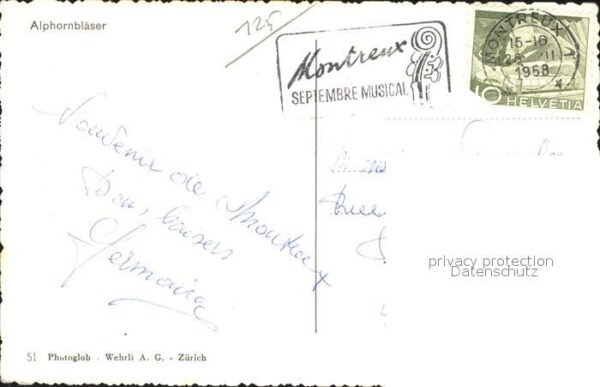 Alphornbläser
125
Montreux
SEPTEMBRE MUSICAL
MONTREUX 1
15-16
1958
10 HELVETIA
Souvenir de Montreux
Bons baisers
Germaine
Rue
privacy protection
Datenschutz
51 Photoglob - Wehrli A. G. - Zürich